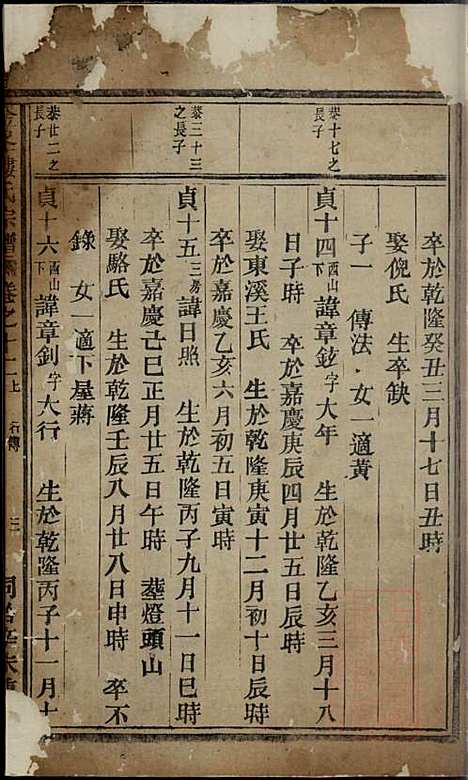 卒於乾隆癸丑三月十七日丑時
娶倪氏 生卒缺
子一 傳法 女一適黃
恭十七之長子
貞十四 酉山下 諱章鉉字大年 生於乾隆乙亥三月十八
日子時 卒於嘉慶庚辰四月廿五日辰時
娶東溪王氏 生於乾隆庚寅十二月初十日辰時
卒於嘉慶乙亥六月初五日寅時
恭三十三之長子
貞十五 三房 諱日照 生於乾隆丙子九月十一日巳時
卒於嘉慶己巳正月廿五日午時 塟燈頭山
娶駱氏 生於乾隆壬辰八月廿八日申時 卒不
錄 女一適下屋蔣
恭廿二之長子
貞十六 酉山下 諱章釗字大行 生於乾隆丙子十一月十
樓氏宗譜 卷之十二上